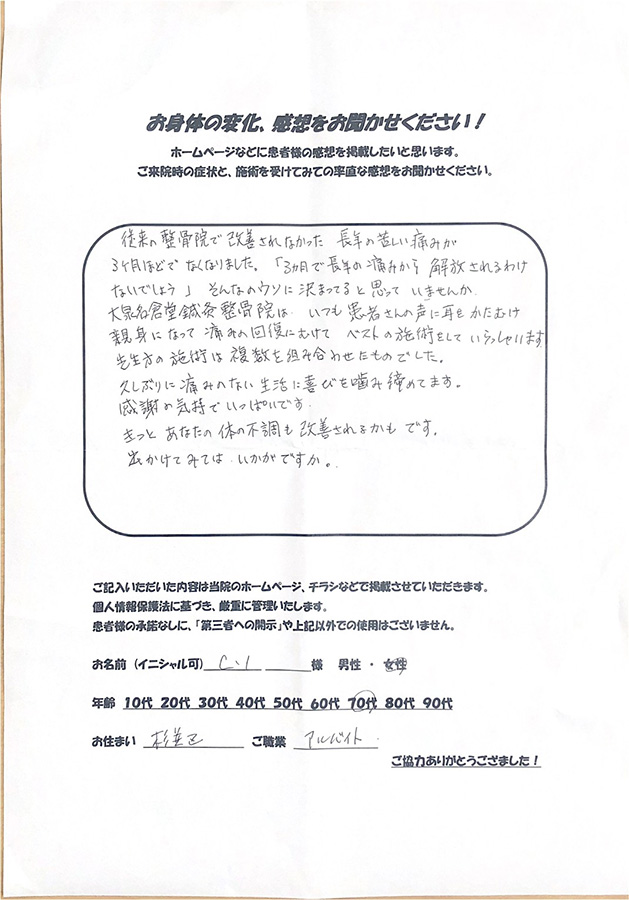 お身体の変化、感想をお聞かせください！
ホームページなどに患者様の感想を掲載したいと思います。
ご来院時の症状と、施術を受けてみての率直な感想をお聞かせください。
従来の整骨院で改善されなかった 長年の苦しい痛みが
3ヶ月ほどで なくなりました。「3ヵ月で長年の痛みから 解放されるわけ
ないでしょう」そんなのウソに決まってると思って いませんか
大泉名倉堂鍼灸整骨院は、いつも患者さんの声に耳をかたむけ
親身になって痛みの回復にむけて ベストの施術をしていらっしゃいます
先生方の施術は複数を組み合わせたものでした。
久しぶりに痛みのない生活に喜びを噛み締めてます。
感謝の気持でいっぱいです。
きっと あなたの体の不調も改善されるかもです。
出かけてみては いかがですか。
ご記入いただいた内容は当院のホームページ、チラシなどで掲載させていただきます。
個人情報保護法に基づき、厳重に管理いたします。
患者様の承諾なしに、「第三者への開示」や上記以外での使用はございません。
お名前（イニシャル可） C・I 様 男性 ・ 女性
年齢 10代 20代 30代 40代 50代 60代 70代 80代 90代
お住まい 杉並区 ご職業 アルバイト
ご協力ありがとうございました！